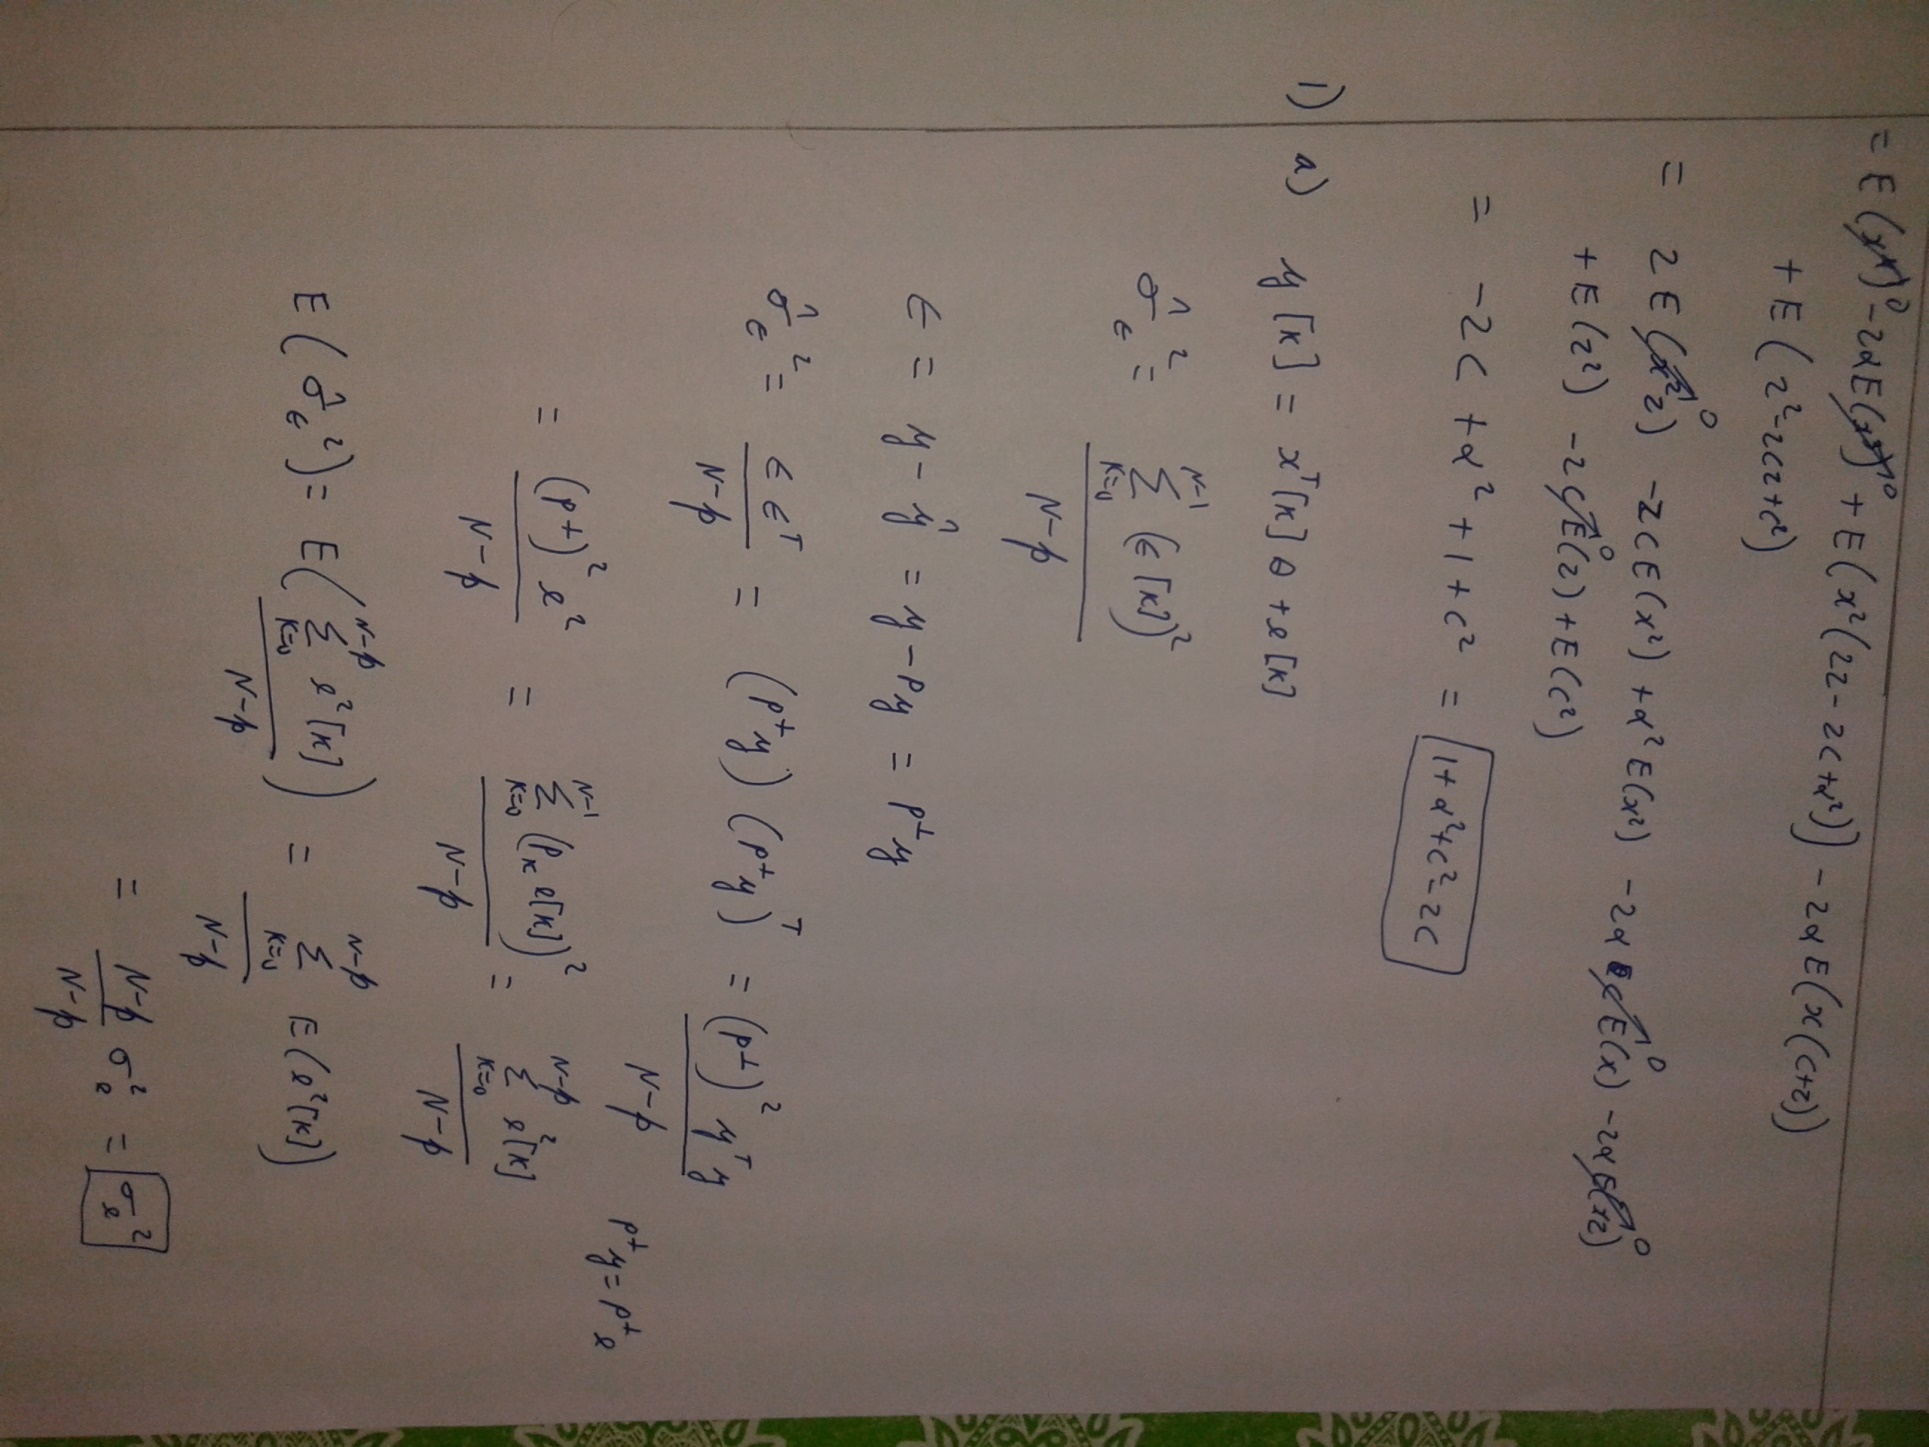 = E(xx)⁰ - 2αE(x³)⁰ + E(x²(2z - 2c + α²)) - 2αE(x(c+z))
+ E(z² - 2cz + c²)
= 2E(x²z)⁰ - 2cE(x²) + α²E(x²) - 2αcE(x)⁰ - 2αE(xz)⁰
+ E(z²) - 2cE(z)⁰ + E(c²)
= -2c + α² + 1 + c² = 1 + α² + c² - 2c
1) a) y[k] = xᵀ[k]θ + e[k]
σ̂_ϵ² = \frac{\sum_{k=0}^{N-1} (ϵ[k])²}{N-p}
ϵ = y - ŷ = y - Py = P^⊥y
σ̂_ϵ² = \frac{ϵϵᵀ}{N-p} = (P^⊥y)(P^⊥y)ᵀ = \frac{(P^⊥)² yᵀy}{N-p}
P^⊥y = P^⊥e
= \frac{(P^⊥)² e²}{N-p} = \frac{\sum_{k=0}^{N-1} (P_k e[k])²}{N-p} = \frac{\sum_{k=0}^{N-p} e²[k]}{N-p}
E(σ̂_ϵ²) = E(\frac{\sum_{k=0}^{N-p} e²[k]}{N-p}) = \frac{\sum_{k=0}^{N-p}}{N-p} E(e²[k])
= \frac{N-p}{N-p} σ_e² = σ_e²